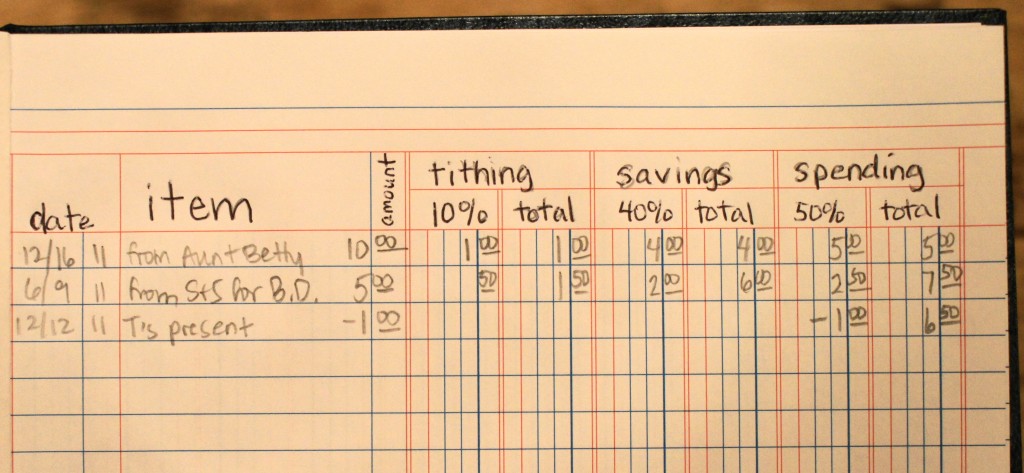 date item amount tithing savings spending
10% total 40% total 50% total
12/16 11 from Aunt Betty 10 00 1 00 1 00 4 00 4 00 5 00 5 00
6/9 11 from S+S for B.D. 5 00 50 1 50 2 00 6 00 2 50 7 50
12/12 11 T's present -1 00 -1 00 6 50